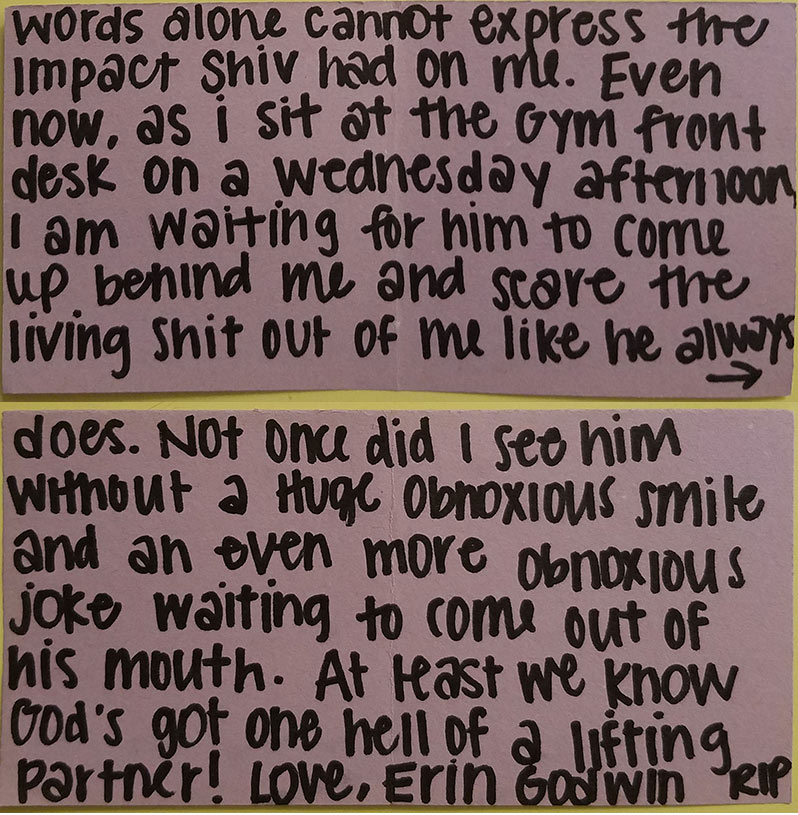 words alone cannot express the
impact Shiv had on me. Even
now, as i sit at the Gym front
desk on a wednesday afternoon,
I am waiting for him to come
up behind me and scare the
living shit out of me like he always
→
does. Not once did I see him
without a Huge obnoxious smile
and an even more obnoxious
joke waiting to come out of
his mouth. At least we know
God's got one hell of a lifting
partner! Love, Erin Godwin RIP